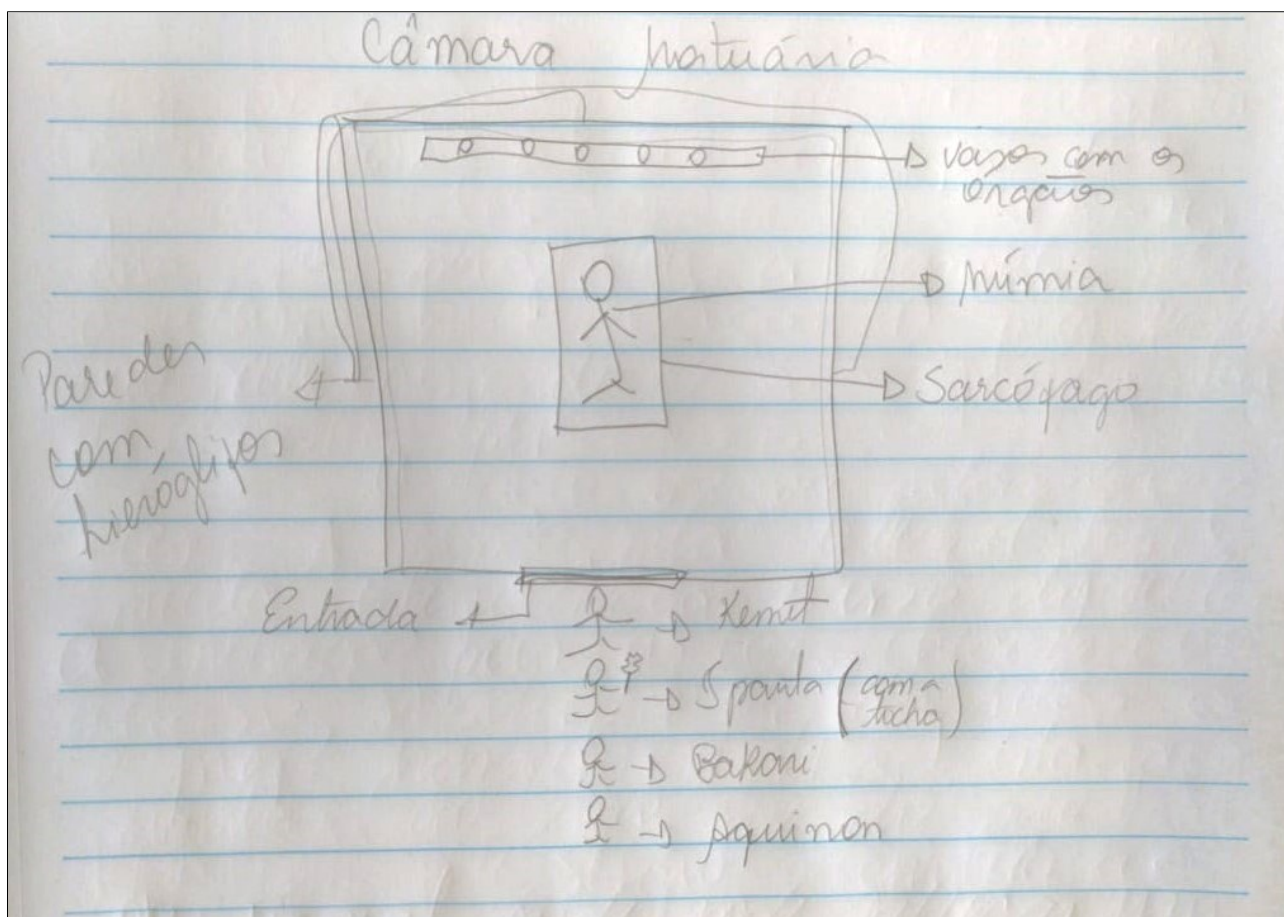 Câmara Mortuária
vasos com os
órgãos
Múmia
Sarcófago
Paredes
com
hieróglifos
Entrada
Kemet
Spanta (com a
tocha)
Bakari
Aquinon